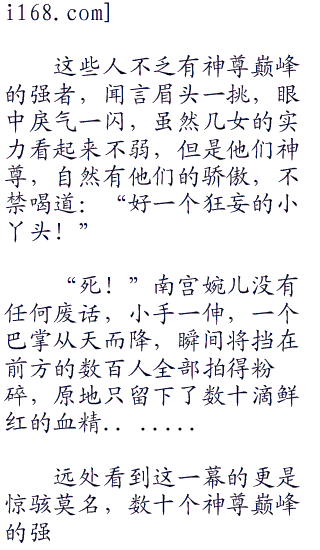 i168.com]
这些人不乏有神尊巅峰
的强者，闻言眉头一挑，眼
中戾气一闪，虽然几女的实
力看起来不弱，但是他们神
尊，自然有他们的骄傲，不
禁喝道：“好一个狂妄的小
丫头！”
“死！”南宫婉儿没有
任何废话，小手一伸，一个
巴掌从天而降，瞬间将挡在
前方的数百人全部拍得粉
碎，原地只留下了数十滴鲜
红的血精.. .....
远处看到这一幕的更是
惊骇莫名，数十个神尊巅峰
的强